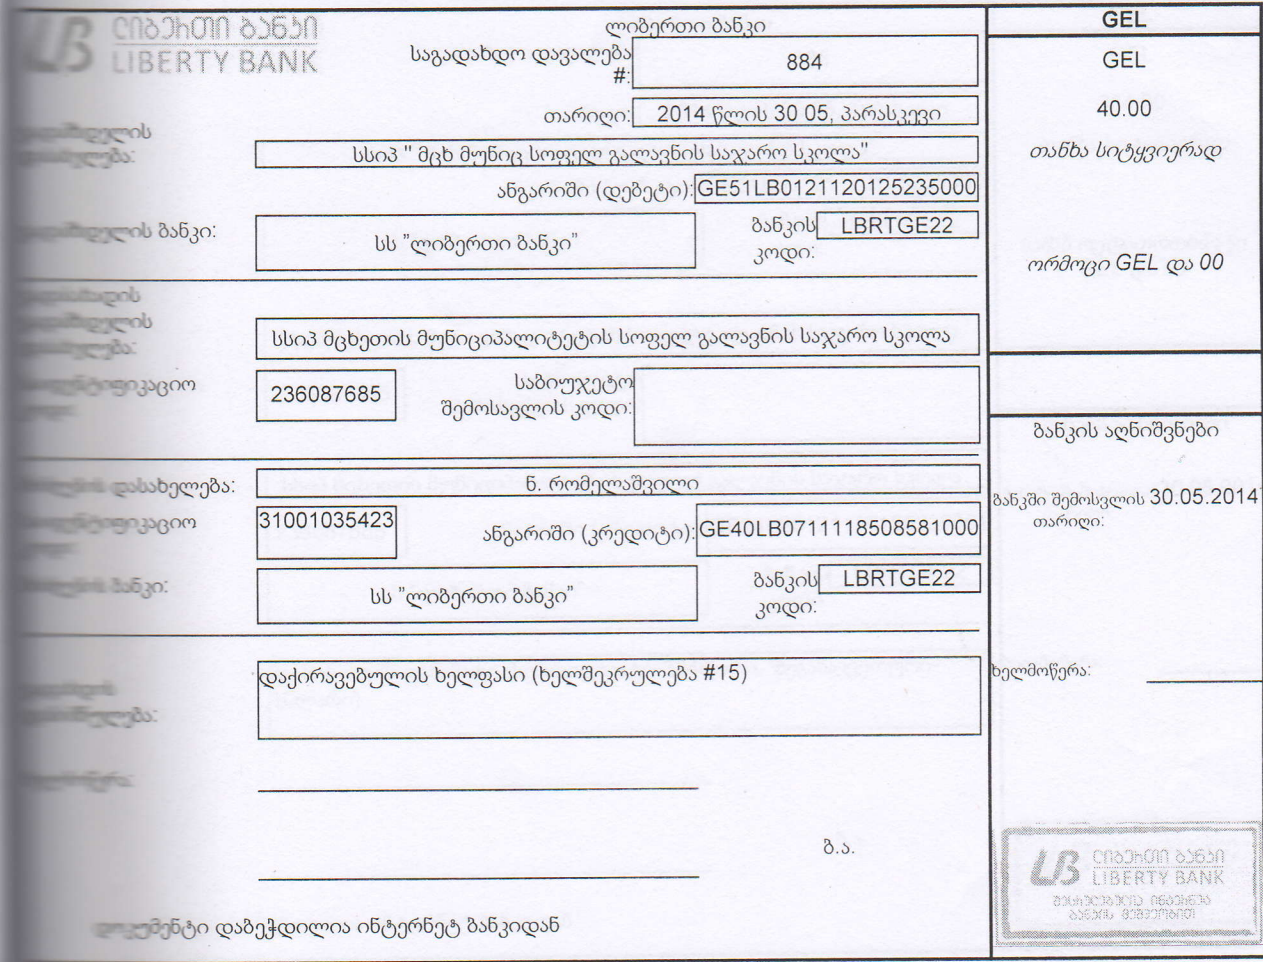 ლიბერთი ბანკი
LIBERTY BANK
ლიბერთი ბანკი
საგადახდო დავალება #: 884
თარიღი: 2014 წლის 30 05, პარასკევი
სსიპ " მცხ მუნიც სოფელ გალავნის საჯარო სკოლა"
ანგარიში (დებეტი): GE51LB0121120125235000
ბანკი: სს "ლიბერთი ბანკი" ბანკის კოდი: LBRTGE22
სსიპ მცხეთის მუნიციპალიტეტის სოფელ გალავნის საჯარო სკოლა
236087685 საბიუჯეტო შემოსავლის კოდი:
დასახელება: ნ. რომელაშვილი
31001035423 ანგარიში (კრედიტი): GE40LB0711118508581000
ბანკი: სს "ლიბერთი ბანკი" ბანკის კოდი: LBRTGE22
დაქირავებულის ხელფასი (ხელშეკრულება #15)
ბ.ა.
დოკუმენტი დაბეჭდილია ინტერნეტ ბანკიდან
GEL
GEL
40.00
თანხა სიტყვიერად
ორმოცი GEL და 00
ბანკის აღნიშვნები
ბანკში შემოსვლის თარიღი: 30.05.2014
ხელმოწერა:
ლიბერთი ბანკი
LIBERTY BANK
შესრულებულია ინტერნეტ
ბანკის მეშვეობით